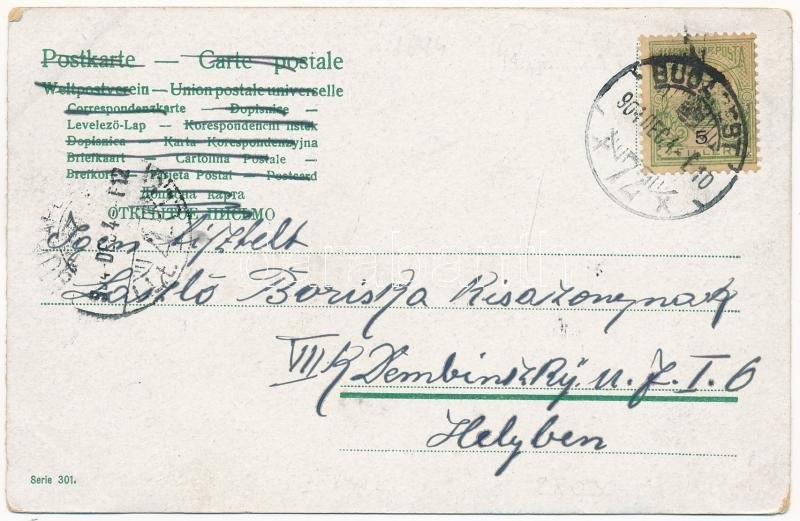 Postkarte — Carte postale
Weltpostverein — Union postale universelle
Correspondenzkarte — Dopisnice —
Levelező-Lap — Korespondenční lístek
Dopisnica — Karta Korespondenzyjna
Briefkaart — Cartolina Postale —
Brefkort — Tarjeta Postal — Postcard
ОТКРЫТОЕ ПИСЬМО
BUDAPEST
904 DEC
72
5
László Boriska Kisazonynak
VII K Dembinszky. u. 7. I. 6
Helyben
Serie 301.
darabanth